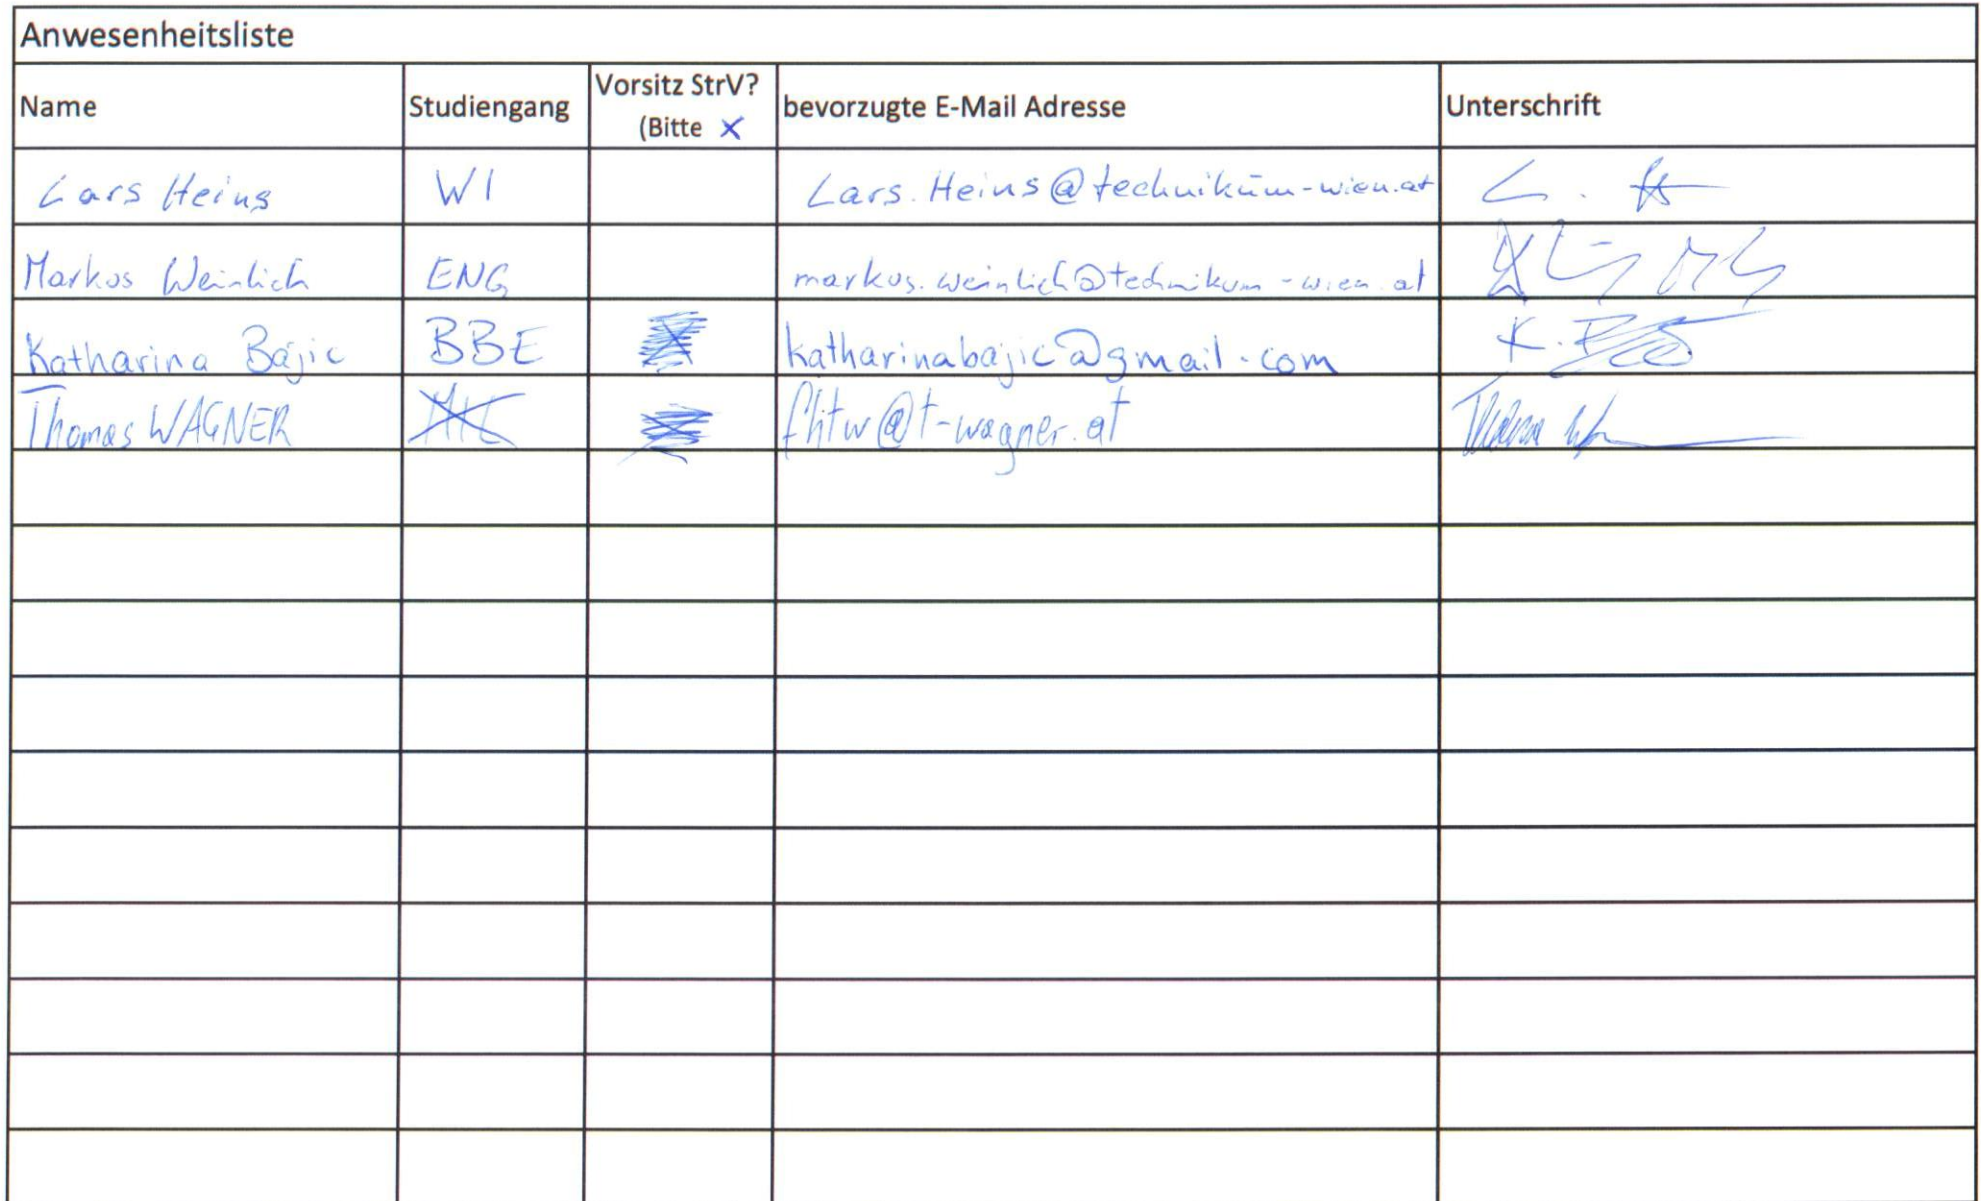 Anwesenheitsliste
Name Studiengang Vorsitz StrV? (Bitte X bevorzugte E-Mail Adresse Unterschrift
Lars Heins WI Lars.Heins@technikum-wien.at
Markus Weinlich ENG markus.weinlich@technikum-wien.at
Katharina Bajic BBE katharinabajic@gmail.com K.
Thomas WAGNER fhtw@t-wagner.at Thomas